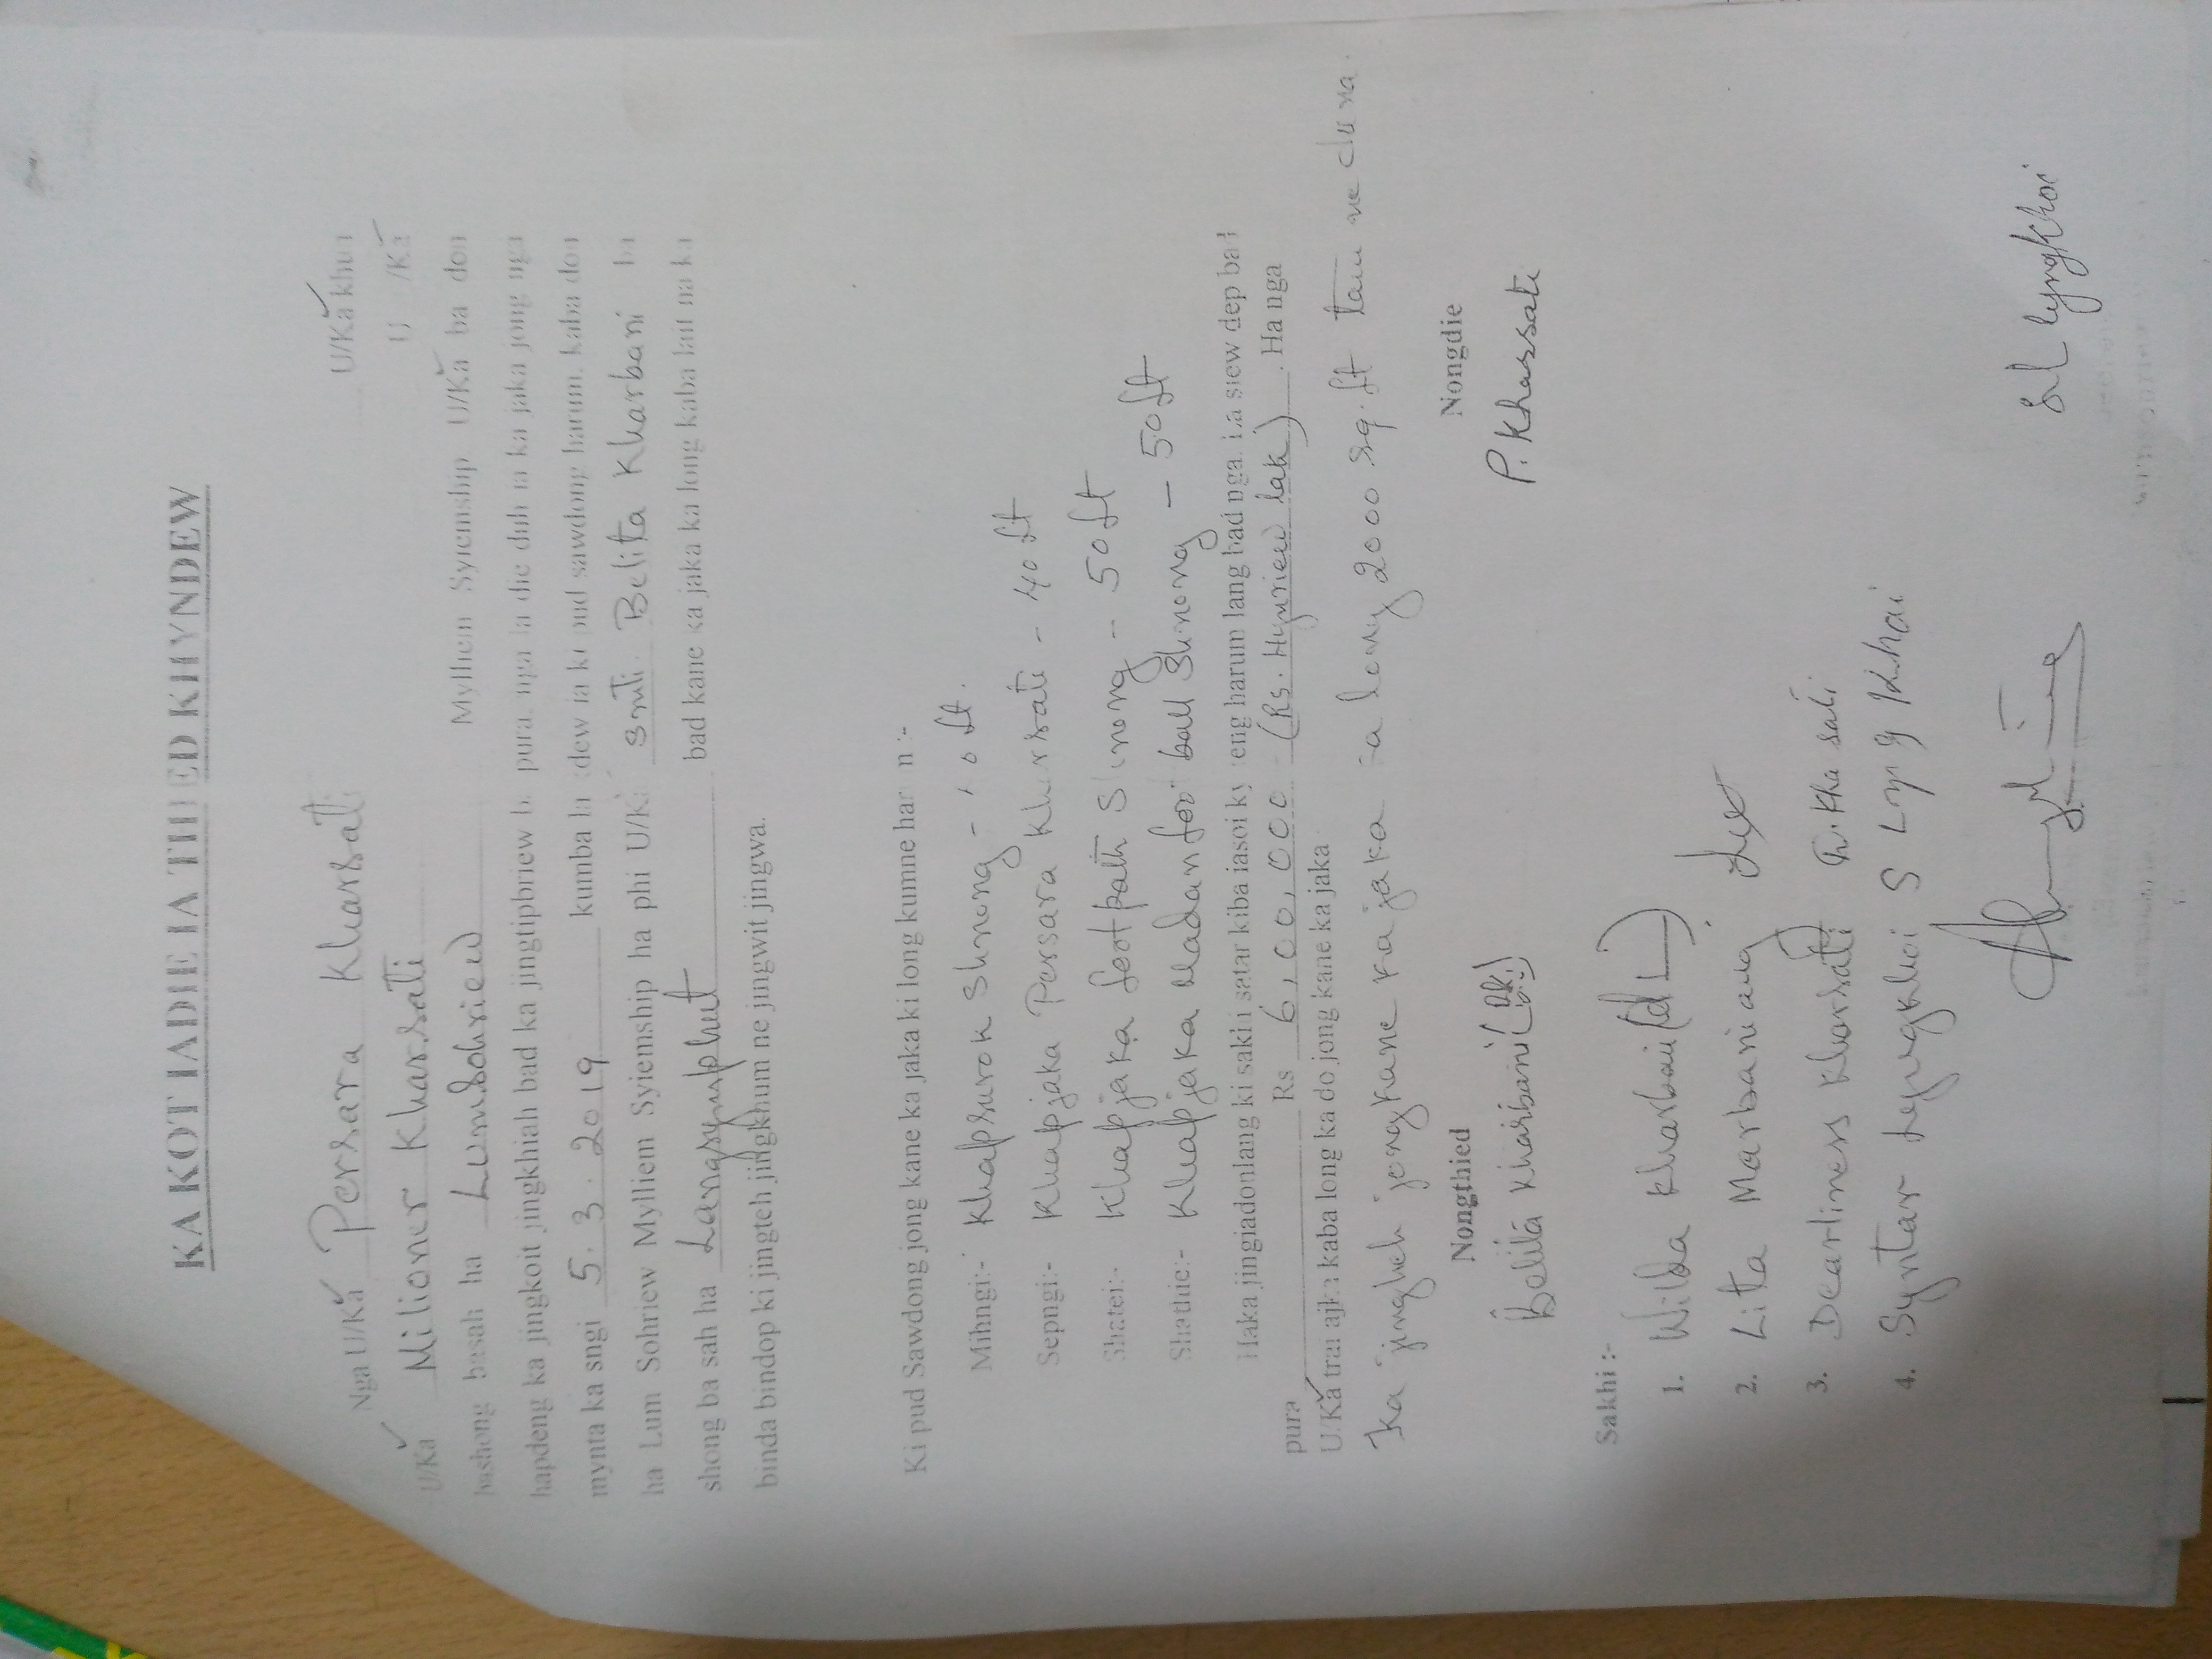 KA KOT IADIE IA THIED KHYNDEW
Nga U/Ka Persara Kharsati U/Ka khun
U/Ka Milioner Kharsati U /Ka
bashong basah ha Lumsohriew Mylliem Syiemship U/Ka ba don
hapdeng ka jingkoit jingkhiah bad ka jingtipbriew pura nga la die duh ia ka jaka jong nga
mynta ka sngi 5.3.2019 kumba la dew ia ki pud sawdong harum. kaba don
ha Lum Sohriew Mylliem Syiemship ha phi U/Ka Smti. Belita Kharbani ba
shong ba sah ha Langsymphut bad kane ka jaka ka long kaba lait na ka
binda bindop ki jingteh jingkhum ne jingwit jingwa.
Ki pud Sawdong jong kane ka jaka ki long kumne har n :-
Mihngi:- Khapsurok Shnong - 40 ft.
Sepngi:- Khapjaka Persara Kharsati - 40 ft
Shatei:- Khapjaka footpath Shnong - 50 ft
Shathie:- Khapjaka Madan foot ball Shnong - 50 ft
Haka jingiadonlang ki sakhi satar kiba iasoi ky eng harum lang bad nga. La siew dep bad
pura Rs 6,00,000 (Rs. Hynriew lak) . Ha nga
U/Ka trai ajka kaba long ka do jong kane ka jaka
Ka jingheh jong kane ka jaka ka long 2000 sq.ft tam ne duna.
Nongthied Nongdie
Belita Kharbani P. Kharsati
Sakhi :-
1. Wilda Kharbani
2. Lita Marbaniang
3. Dearliness Kharsati D. Kharsati
4. Syntar Lyngkhoi S Lyngkhoi